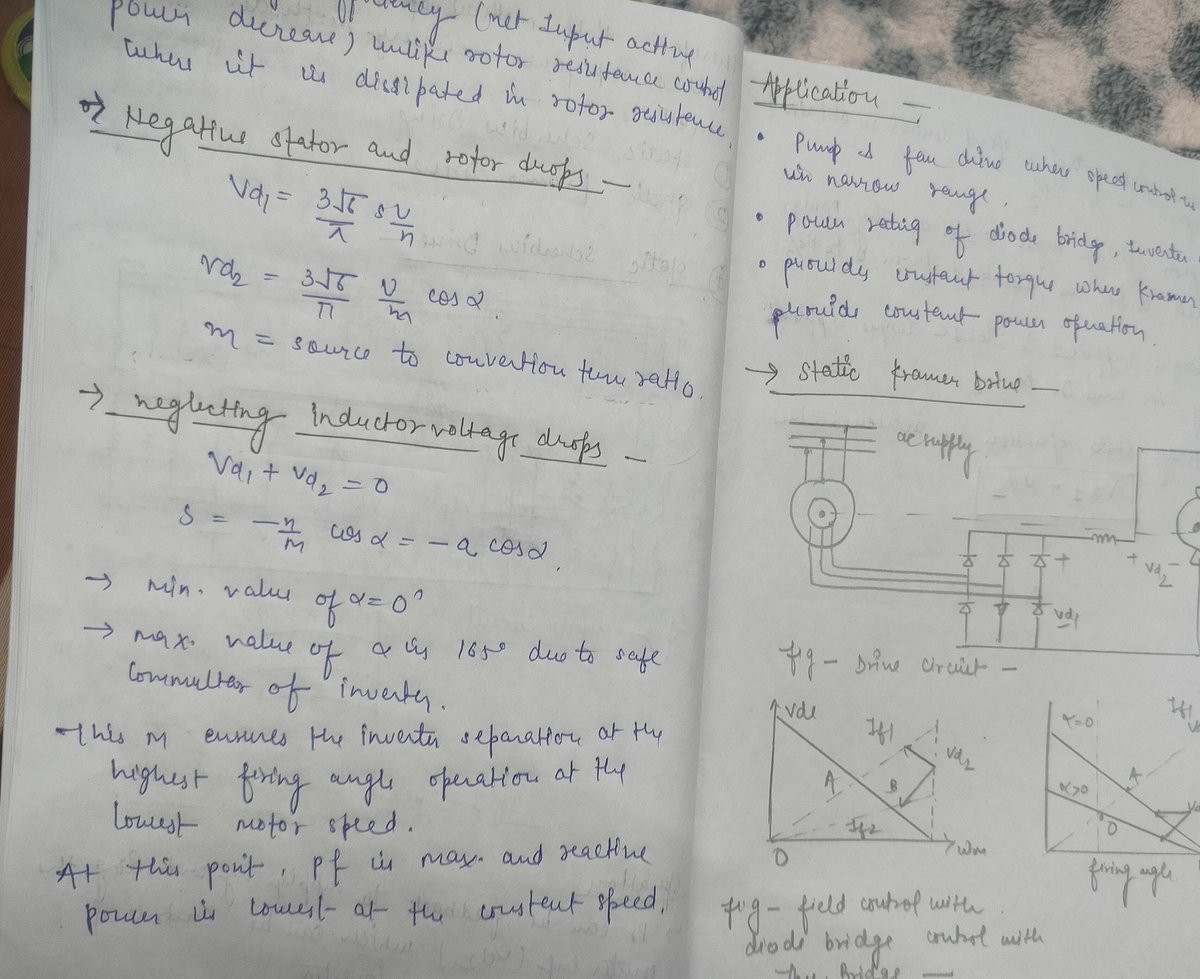 power decrease) unlike rotor resistance control
(net Input active
where it is dissipated in rotor resistance.
→ Negative stator and rotor drops —
Vd1 = 3√6/π s V/n
Vd2 = 3√6/π V/m cos α.
m = source to convertion turn ratio.
→ neglecting inductor voltage drops —
Vd1 + Vd2 = 0
S = -n/m cos α = -a cos α.
→ min. value of α = 0°
→ max. value of α is 165° due to safe
of inverter.
This m ensures the inverter separation at the
highest firing angle operation at the
lowest motor speed.
At this point, pf is max. and reactive
power is lowest at the constent speed.
Application —
• Pump & fan drive where speed control is
in narrow range.
• power ratig of diode bridge, Inverter
• provides constant torque where Kramer
provide constant power operation.
→ static kramer Drive —
ac supply
+ Vd2 -
+
Vd1
fig - Drive circuit —
Vdc
If1
Vd2
A
B
If2
O
Wm
α=0
If1
A
α>0
O
firing angle
fig - field control with
diode bridge control with
Bridge —